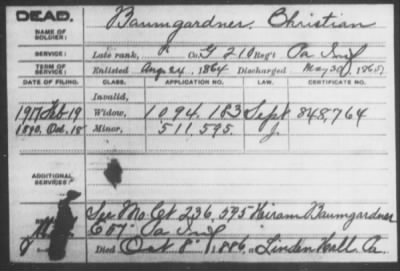 DEAD.
Baumgardner, Christian
NAME OF SOLDIER:
SERVICE: Late rank, Co. G 210 Reg't Pa Inf
TERM OF SERVICE: Enlisted Aug 24, 1864 Discharged May 30, 1865
DATE OF FILING. CLASS. APPLICATION NO. CERTIFICATE NO.
Invalid,
1917 Feb 19 Widow, 1094.183 Sept 848,764
1890. Oct. 18 Minor, 511,595.
ADDITIONAL SERVICES
See Mo. Cf 236,595 Hiram Baumgardner
Pa Inf
Died Oct 8" 1886, at Linden Hall Pa.